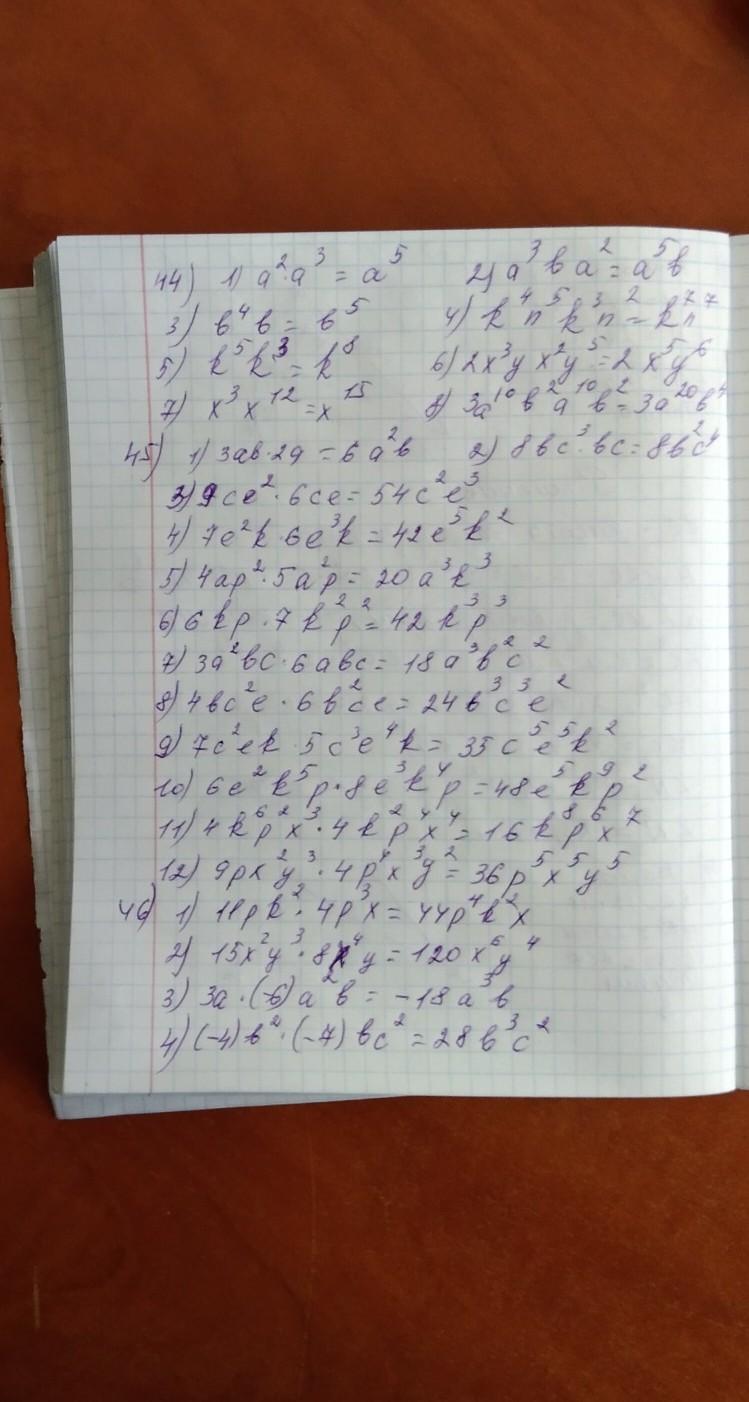 44) 1) a²·a³ = a⁵ 2) a³ в a² = a⁵в
3) в⁴в = в⁵ 4) k⁴n⁵k³n² = k⁷n⁷
5) k⁵k³ = k⁸ 6) 2x³y x²y⁵ = 2x⁵y⁶
7) x³x¹² = x¹⁵ 8) 3a¹⁰в²a¹⁰в² = 3a²⁰в⁴
45) 1) 3aв·2a = 6a²в 2) 8вc³·вc = 8в²c⁴
3) 9ce²·6ce = 54c²e³
4) 7e²k·6e³k = 42e⁵k²
5) 4ap²·5a²p = 20a³k³
6) 6kp·7k²p² = 42k³p³
7) 3a²вc·6aвc = 18a³в²c²
8) 4вc²e·6в²ce = 24в³c³e²
9) 7c²ek·5c³e⁴k = 35c⁵e⁵k²
10) 6e²k⁵p·8e³k⁴p = 48e⁵k⁹p²
11) 4k⁶p²x³·4k²p⁴x⁴ = 16k⁸p⁶x⁷
12) 9px²y³·4p⁴x³y² = 36p⁵x⁵y⁵
46) 1) 11pk²·4p³x = 44p⁴k²x
2) 15x²y³·8x⁴y = 120x⁶y⁴
3) 3a·(-6)a²в = -18a³в
4) (-4)в²·(-7)вc² = 28в³c²